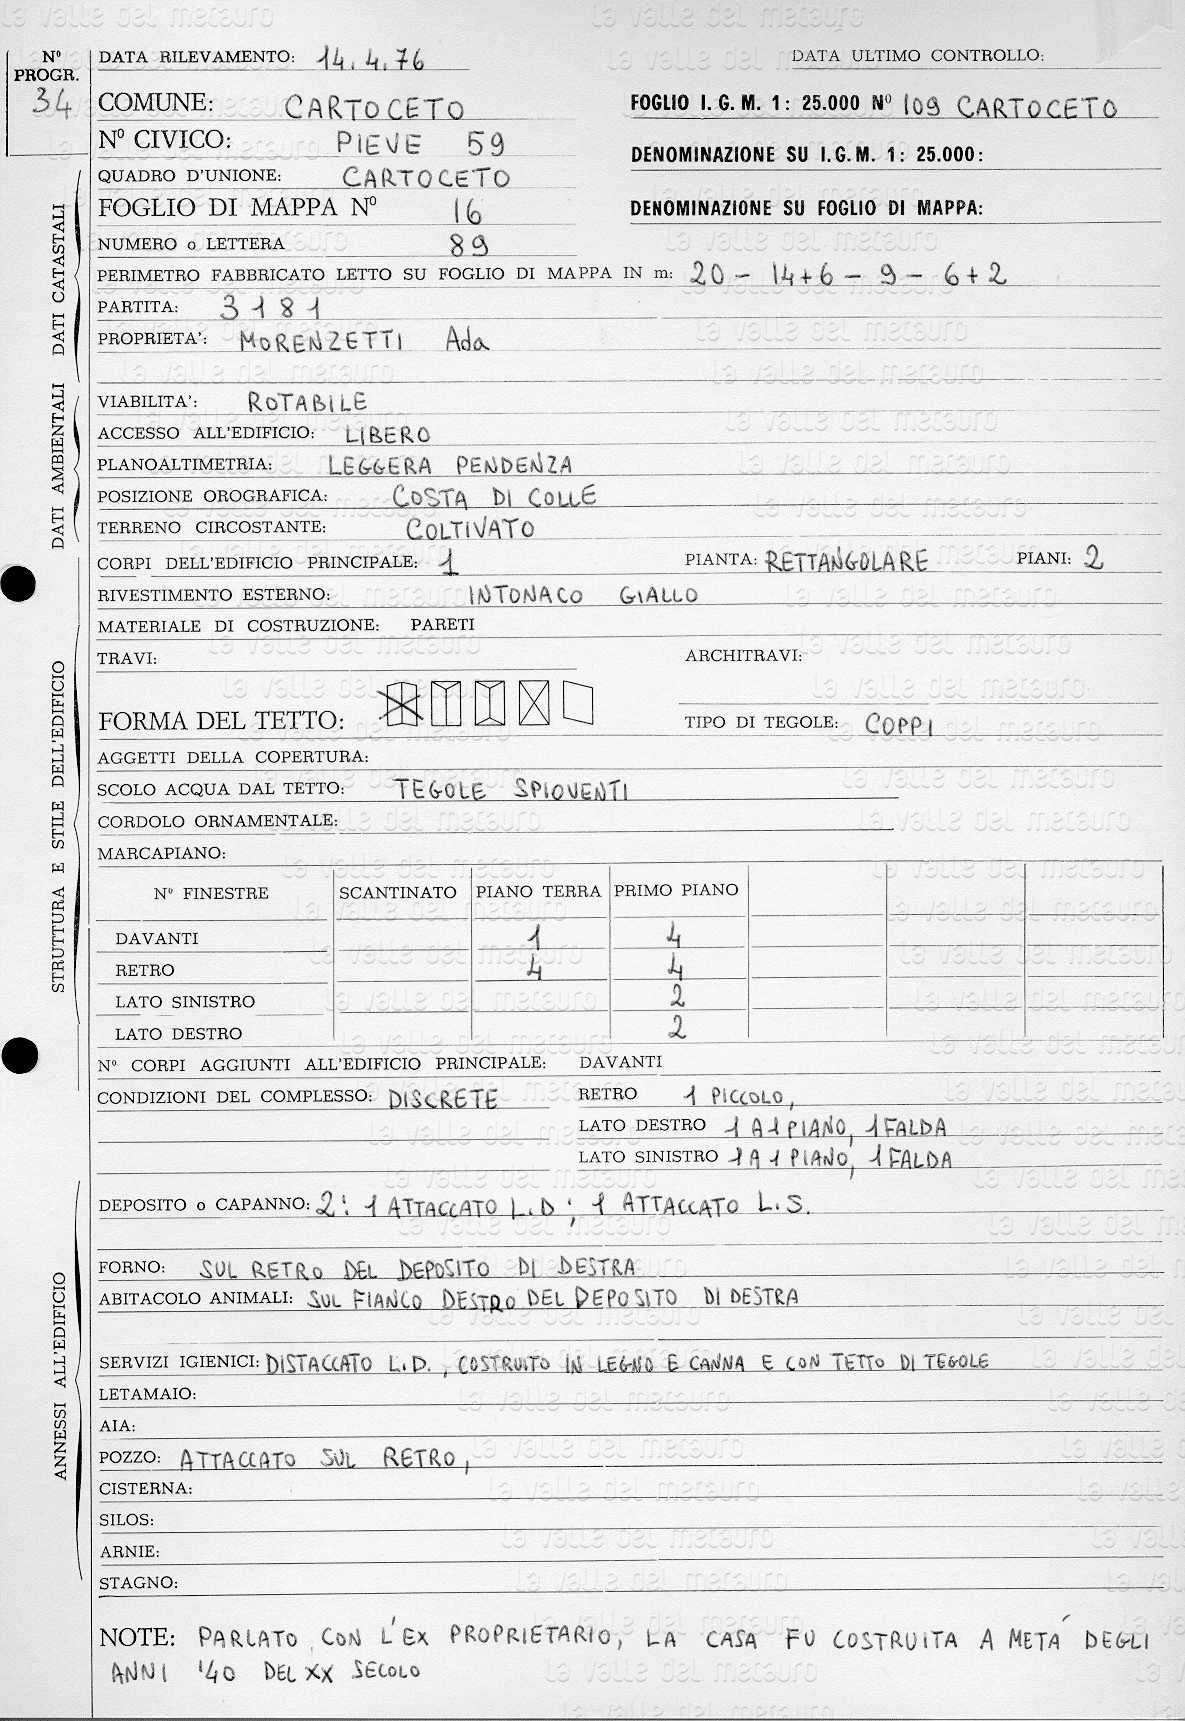 Nº PROGR. 34
DATA RILEVAMENTO: 14.4.76 DATA ULTIMO CONTROLLO:
COMUNE: CARTOCETO FOGLIO I.G.M. 1: 25.000 Nº 109 CARTOCETO
Nº CIVICO: PIEVE 59 DENOMINAZIONE SU I.G.M. 1: 25.000:
DATI CATASTALI
QUADRO D'UNIONE: CARTOCETO
FOGLIO DI MAPPA Nº 16 DENOMINAZIONE SU FOGLIO DI MAPPA:
NUMERO o LETTERA 89
PERIMETRO FABBRICATO LETTO SU FOGLIO DI MAPPA IN m: 20 - 14+6 - 9 - 6+2
PARTITA: 3181
PROPRIETA': MORENZETTI Ada
DATI AMBIENTALI
VIABILITA': ROTABILE
ACCESSO ALL'EDIFICIO: LIBERO
PLANOALTIMETRIA: LEGGERA PENDENZA
POSIZIONE OROGRAFICA: COSTA DI COLLE
TERRENO CIRCOSTANTE: COLTIVATO
STRUTTURA E STILE DELL'EDIFICIO
CORPI DELL'EDIFICIO PRINCIPALE: 1 PIANTA: RETTANGOLARE PIANI: 2
RIVESTIMENTO ESTERNO: INTONACO GIALLO
MATERIALE DI COSTRUZIONE: PARETI
TRAVI: ARCHITRAVI:
FORMA DEL TETTO: TIPO DI TEGOLE: COPPI
AGGETTI DELLA COPERTURA:
SCOLO ACQUA DAL TETTO: TEGOLE SPIOVENTI
CORDOLO ORNAMENTALE:
MARCAPIANO:
Nº FINESTRE SCANTINATO PIANO TERRA PRIMO PIANO
DAVANTI 1 4
RETRO 4 4
LATO SINISTRO 2
LATO DESTRO 2
Nº CORPI AGGIUNTI ALL'EDIFICIO PRINCIPALE: DAVANTI
CONDIZIONI DEL COMPLESSO: DISCRETE RETRO 1 PICCOLO,
LATO DESTRO 1 A 1 PIANO, 1 FALDA
LATO SINISTRO 1 A 1 PIANO, 1 FALDA
ANNESSI ALL'EDIFICIO
DEPOSITO o CAPANNO: 2: 1 ATTACCATO L.D; 1 ATTACCATO L.S.
FORNO: SUL RETRO DEL DEPOSITO DI DESTRA
ABITACOLO ANIMALI: SUL FIANCO DESTRO DEL DEPOSITO DI DESTRA
SERVIZI IGIENICI: DISTACCATO L.D., COSTRUITO IN LEGNO E CANNA E CON TETTO DI TEGOLE
LETAMAIO:
AIA:
POZZO: ATTACCATO SUL RETRO,
CISTERNA:
SILOS:
ARNIE:
STAGNO:
NOTE: PARLATO CON L'EX PROPRIETARIO, LA CASA FU COSTRUITA A METÁ DEGLI
ANNI '40 DEL XX SECOLO
la valle del metauro